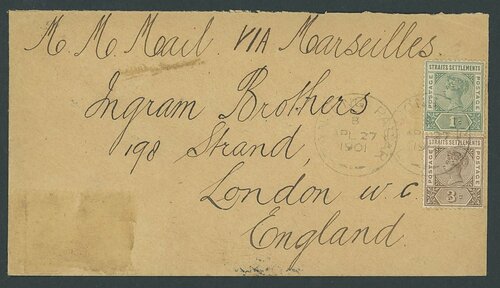 H. M. Mail. VIA Marseilles.
Ingram Brothers
198 Strand,
London W.C.
England.
STRAITS SETTLEMENTS
POSTAGE POSTAGE
1c
STRAITS SETTLEMENTS
POSTAGE POSTAGE
3c
PAGAR
B
AP 27
1901